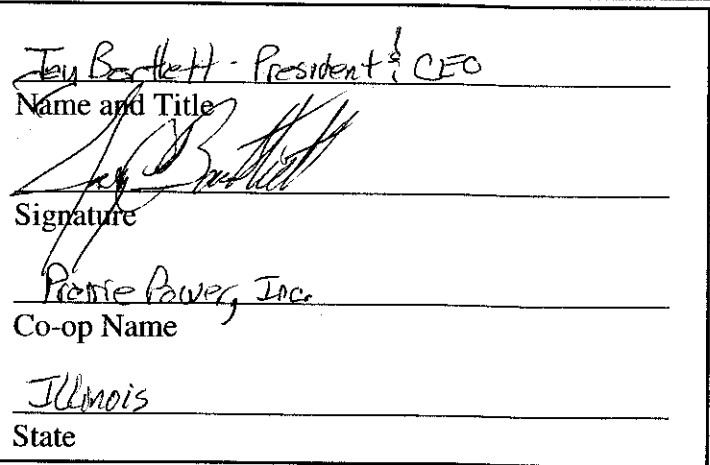 Jay Bartlett - President & CEO
Name and Title
Jay Bartlett
Signature
Prairie Power, Inc.
Co-op Name
Illinois
State